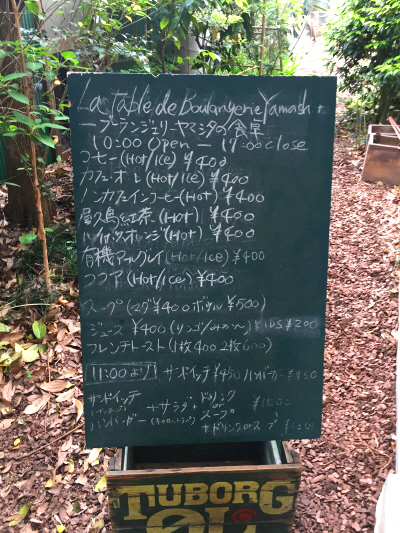 La Table de Boulangerie Yamash
ーブーランジェリーヤマシタの食卓
10:00 Open － 17:00 close
コーヒー(Hot/Ice) ¥400
カフェオレ(Hot/Ice) ¥400
ノンカフェインコーヒー(Hot) ¥400
屋久島紅茶(Hot) ¥400
オレンジ(Hot) ¥400
有機アールグレイ(Hot/Ice) ¥400
ココア(Hot/Ice) ¥400
スープ(マグ¥400 ボウル¥500)
ジュース ¥400(リンゴ/みかん) Kids ¥200
フレンチトースト(1枚400 2枚600)
11:00より サンドイッチ¥450 ハンバーガー¥450
サンドイッチ +サラダ+ドリンク or スープ ¥1000
ハンバーガー +ドリンクorスープ
TUBORG
ØL